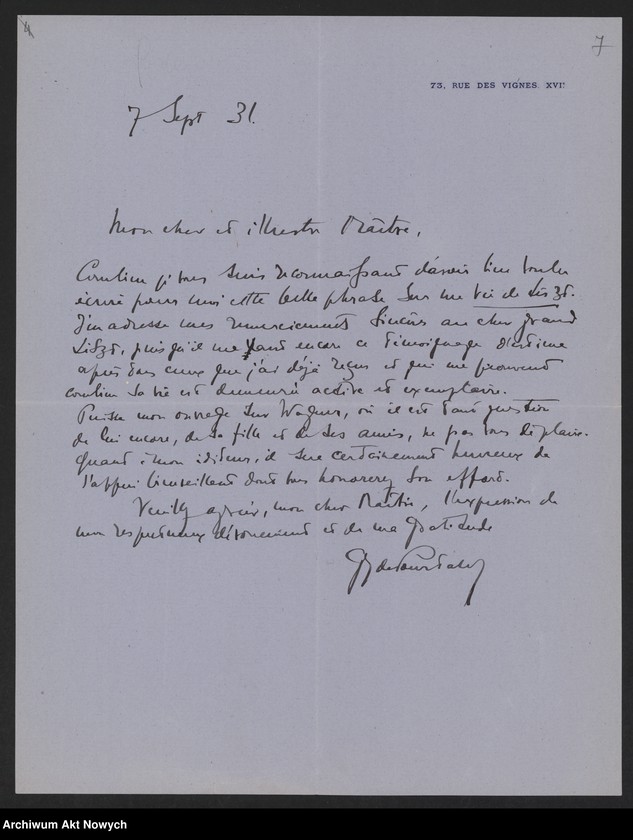 4
7
73, RUE DES VIGNES. XVIe
7 Sept 31.
Mon cher et illustre Maître,
Combien je vous suis reconnaissant d'avoir bien voulu
écrire pour moi cette belle phrase sur ma Vie de Liszt.
J'en adresse mes remerciements sincères au cher grand
Liszt, puisqu'il me vaut encore ce témoignage d'estime
après tous ceux que j'ai déjà reçus et qui me prouvent
combien sa vie est demeurée active et exemplaire.
Puisse mon ouvrage sur Wagner, où il est tant question
de lui encore, de sa fille et de ses amis, ne pas vous déplaire.
Quant à mon éditeur, il sera certainement heureux de
l'appui bienveillant dont vous honorerez son effort.
Veuillez agréer, mon cher Maître, l'expression de
mon respectueux dévouement et de ma gratitude
G de Pourtalès
Archiwum Akt Nowych